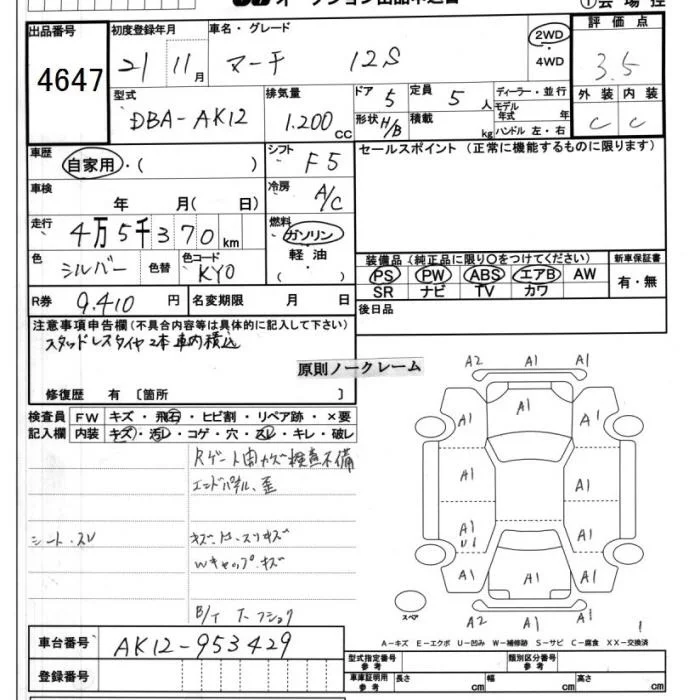 出品番号
4647
初度登録年月
21 11月
車名・グレード
マーチ 12S
2WD
・
4WD
評価点
3.5
外装 内装
C C
型式
DBA-AK12
排気量
1.200cc
ドア 5
形状 H/B
定員 5人
積載 kg
ディーラー・並行
モデル年式 年
ハンドル 左・右
車歴
自家用・( )
シフト F5
セールスポイント (正常に機能するものに限ります)
車検
年 月( 日)
冷房 A/C
走行
4万5千370km
燃料
ガソリン
軽油
( ・ )
色
シルバー 色替
色コード
KY0
装備品(純正品に限り○をつけてください)
PS PW ABS エアB AW
SR ナビ TV カワ
新車保証書
有・無
R券 9.410円
名変期限 月 日
後日品
注意事項申告欄(不具合内容等は具体的に記入して下さい)
スタッドレスタイヤ2本車内積込
原則ノークレーム
修復歴 有 〔箇所 〕
検査員
記入欄
FW キズ・飛石・ヒビ割・リペア跡・×要
内装 キズ・汚レ・コゲ・穴・スレ・キレ・破レ
Rゲート内カズ検査不備
エンドパネル、歪
シート・スレ
Wキャップ・キズ
A2 A1 A1
A1 A1 A1
A1 A1
A1 U1 A1
A1 A1 A1
A2 A1 A1
スペア
1
A-キズ E-エクボ U-凹み W-補修跡 S-サビ C-腐食 XX-交換済
車台番号 AK12-953429
登録番号
型式指定番号
参考
類別区分番号
参考
車庫証明用
参考
長さ cm
幅 cm
高さ cm